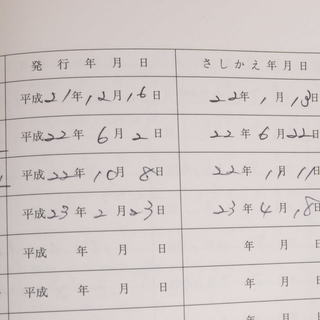 発行年月日 さしかえ年月日
平成21年12月16日 22年1月13日
平成22年6月2日 22年6月22日
平成22年10月8日 22年11月11日
平成23年2月23日 23年4月18日
平成 年 月 日 年 月 日
平成 年 月 日 年 月 日